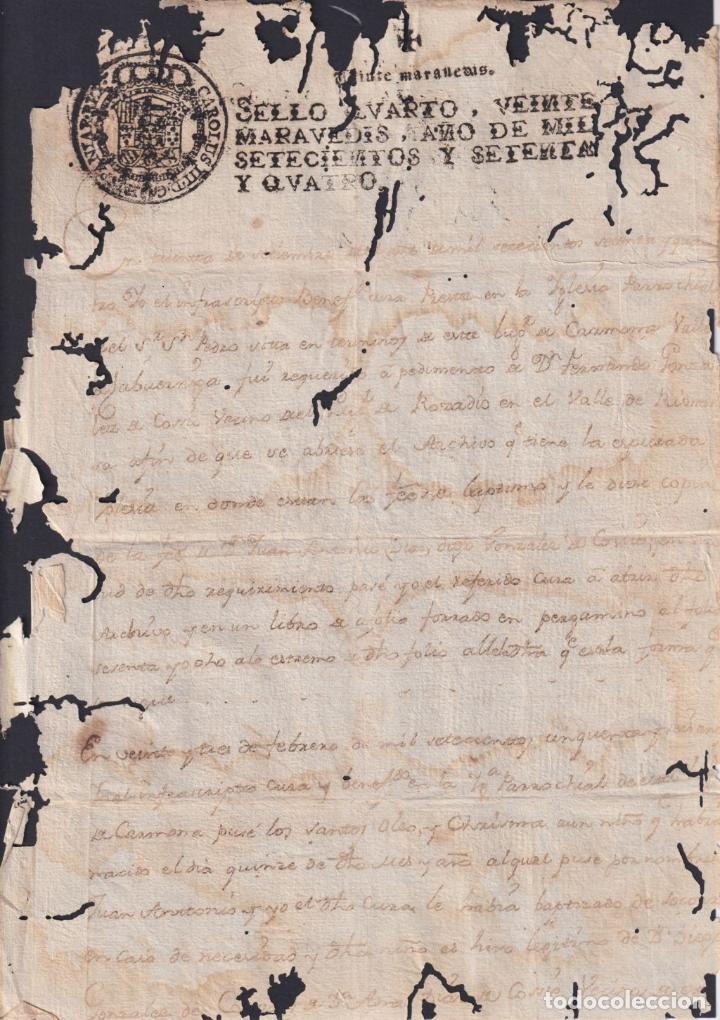 CAROLUS III D. G.
Veinte maravedis.
SELLO QVARTO, VEINTE
MARAVEDIS, AÑO DE MIL
SETECIENTOS Y SETENTA
Y QVATRO.
de mil setecientos setenta y qua
tro Yo el infrascripto Benef.do Cura en la Yglesia Parrochial
del S.r S.n Pedro sitta en terminos de este lug.r de Carmona Valle
de Cabuerniga fui requerido â pedimento de D.n Fernando Gonza
lez de Cossio Vecino del de Rozadio en el Valle de Rionan
sa afin de que se abriese el Archivo q.e tiene la espresada
Yglesia en donde estan las fees de baptismo y le diese copia
de la fee de D.n Juan Antonio Gonzalez de Cossio, en
tud de dho requirimiento pasé yo el referido Cura â abrir dho
Archivo y en un libro de afolio forrado en pergamino al folio
sesenta y ocho alo estremo de dho folio q.e esta forma
sigue
En veinte y tres de febrero de mil setecientos cinquenta y
Yo el infrascripto Cura y benef.do en la Yg.a Parrochial de
de Carmona puse los santos oleos, y Chrisma a un niño q.e habia
nacido el dia quinze de dho Mes y año al qual puse por nombre
Juan Antonio, y yo el dho Cura le habia baptizado de socorro
en caso de necesidad y dho niño es hijo legitimo de D.n Diego
Gonzalez de D.a Ana de Cossio Vezinos de
todocoleccion